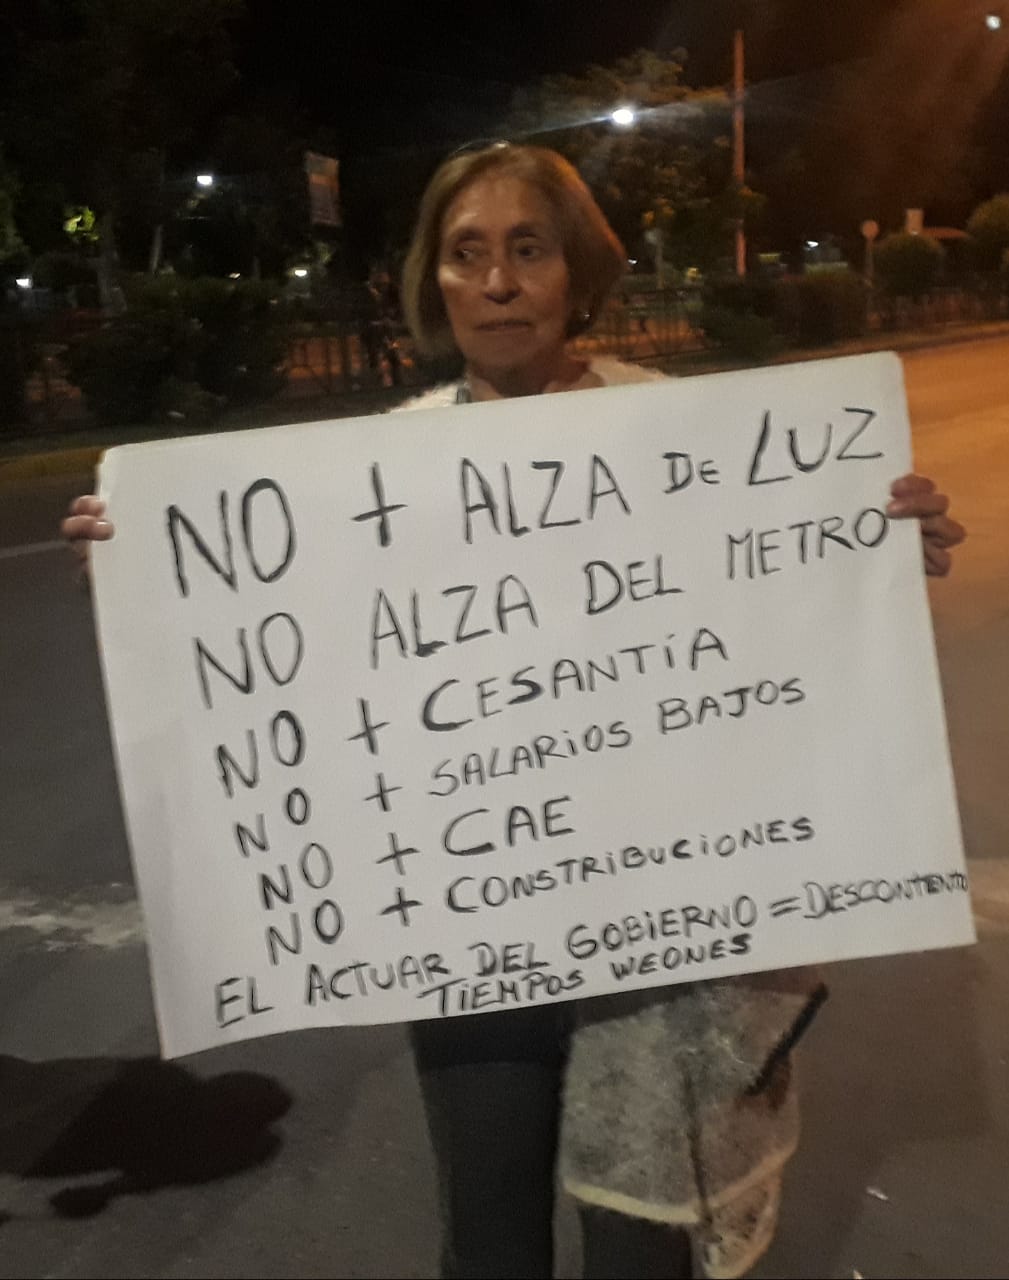 NO + ALZA DE LUZ
NO ALZA DEL METRO
NO + CESANTÍA
NO + SALARIOS BAJOS
NO + CAE
NO + CONSTRIBUCIONES
EL ACTUAR DEL GOBIERNO = DESCONTENTO
TIEMPOS WEONES